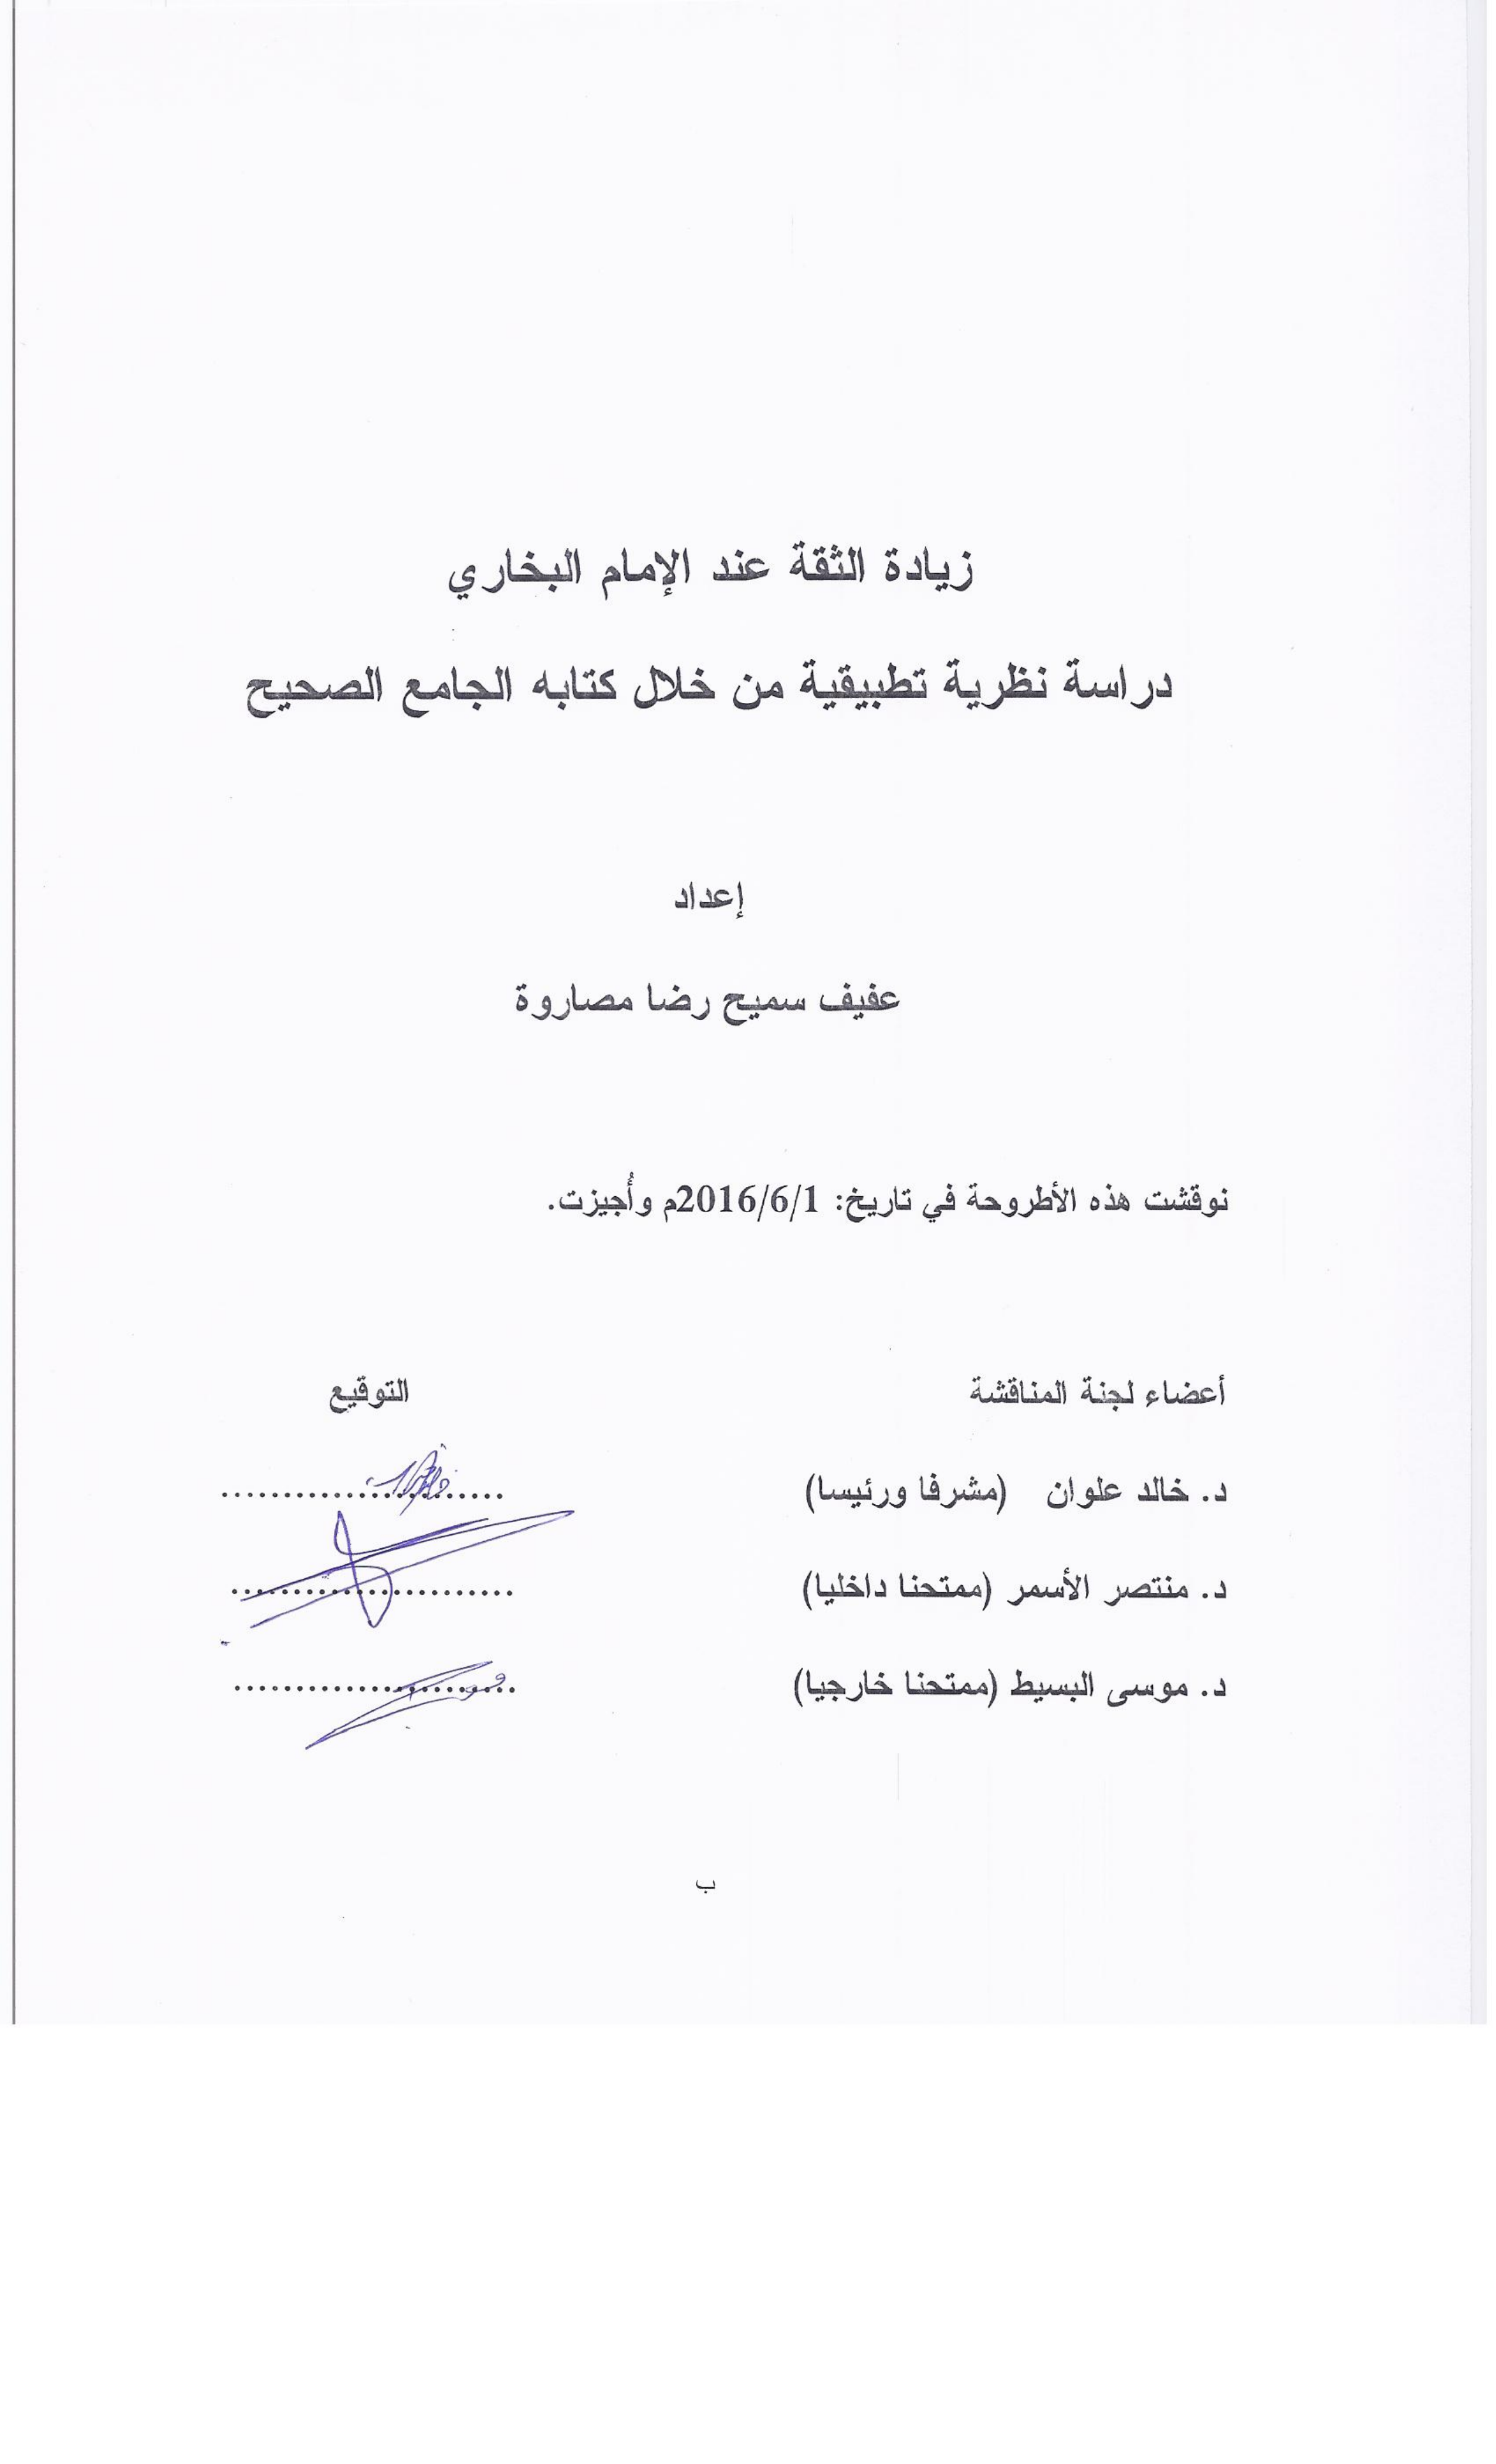 زيادة الثقة عند الإمام البخاري
دراسة نظرية تطبيقية من خلال كتابه الجامع الصحيح
إعداد
عفيف سميح رضا مصاروة
نوقشت هذه الأطروحة في تاريخ: 2016/6/1م وأُجيزت.
أعضاء لجنة المناقشة التوقيع
د. خالد علوان (مشرفا ورئيسا) ......................
د. منتصر الأسمر (ممتحنا داخليا) ......................
د. موسى البسيط (ممتحنا خارجيا) ......................
ب